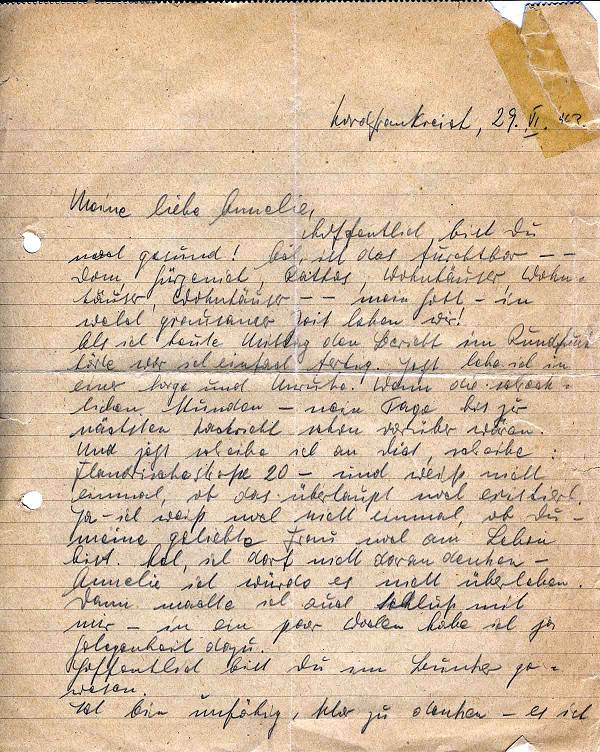 Nordfrankreich, 29. VI. 43.
Meine liebe Annelie,
Hoffentlich bist Du
noch gesund! Gott, ist das furchtbar – –
Dom, Gürzenich, Rathas, Wohnhäuser, Wohn-
häuser, Wohnhäuser – – mein Gott – in
welch grausamer Zeit leben wir!
Als ich heute Mittag den Bericht im Rundfunk
hörte war ich einfach fertig. Jetzt lebe ich in
einer Sorge und Unruhe. Wenn die schreck-
lichen Stunden – nein Tage bis zur
nächsten Nachricht schon vorüber wären.
Und jetzt schreibe ich an Dich, schreibe:
Flandrischestraße 20 – und weiß nicht
einmal, ob das überhaupt noch existiert.
Ja – ich weiß noch nicht einmal, ob Du –
meine geliebte Frau noch am Leben
bist. Ach, ich darf nicht daran denken –
Annelie ich würde es nicht überleben.
Dann machte ich auch Schluß mit
mir – in ein paar Wochen habe ich ja
Gelegenheit dazu.
Hoffentlich bist Du im Bunker ge-
wesen.
Ich bin unfähig, klar zu denken – es ich